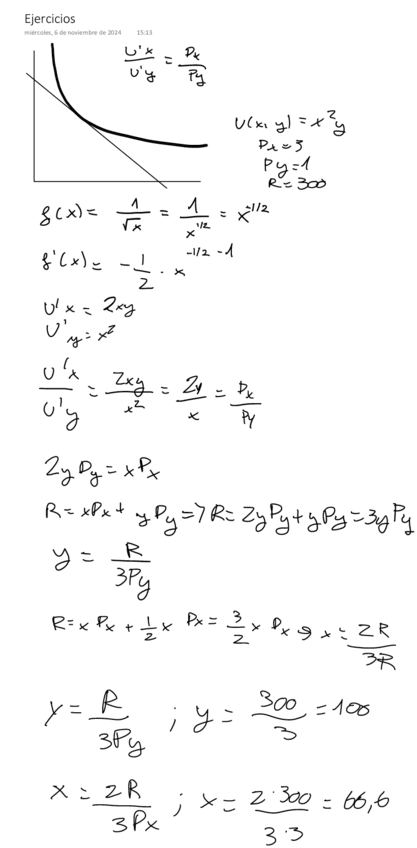 Ejercicios
miércoles, 6 de noviembre de 2024 15:13
U'x / U'y = Px / Py
U(x, y) = x²y
Px = 3
Py = 1
R = 300
f(x) = 1/√x = 1/x^1/2 = x^-1/2
f'(x) = -1/2 · x^-1/2 -1
U'x = 2xy
U'y = x²
U'x / U'y = 2xy / x² = 2y / x = Px / Py
2y Py = x Px
R = xPx + yPy => R = 2yPy + yPy = 3yPy
y = R / 3Py
R = x Px + 1/2 x Px = 3/2 x Px → x = 2R / 3R
y = R / 3Py ; y = 300 / 3 = 100
x = 2R / 3Px ; x = 2·300 / 3·3 = 66,6